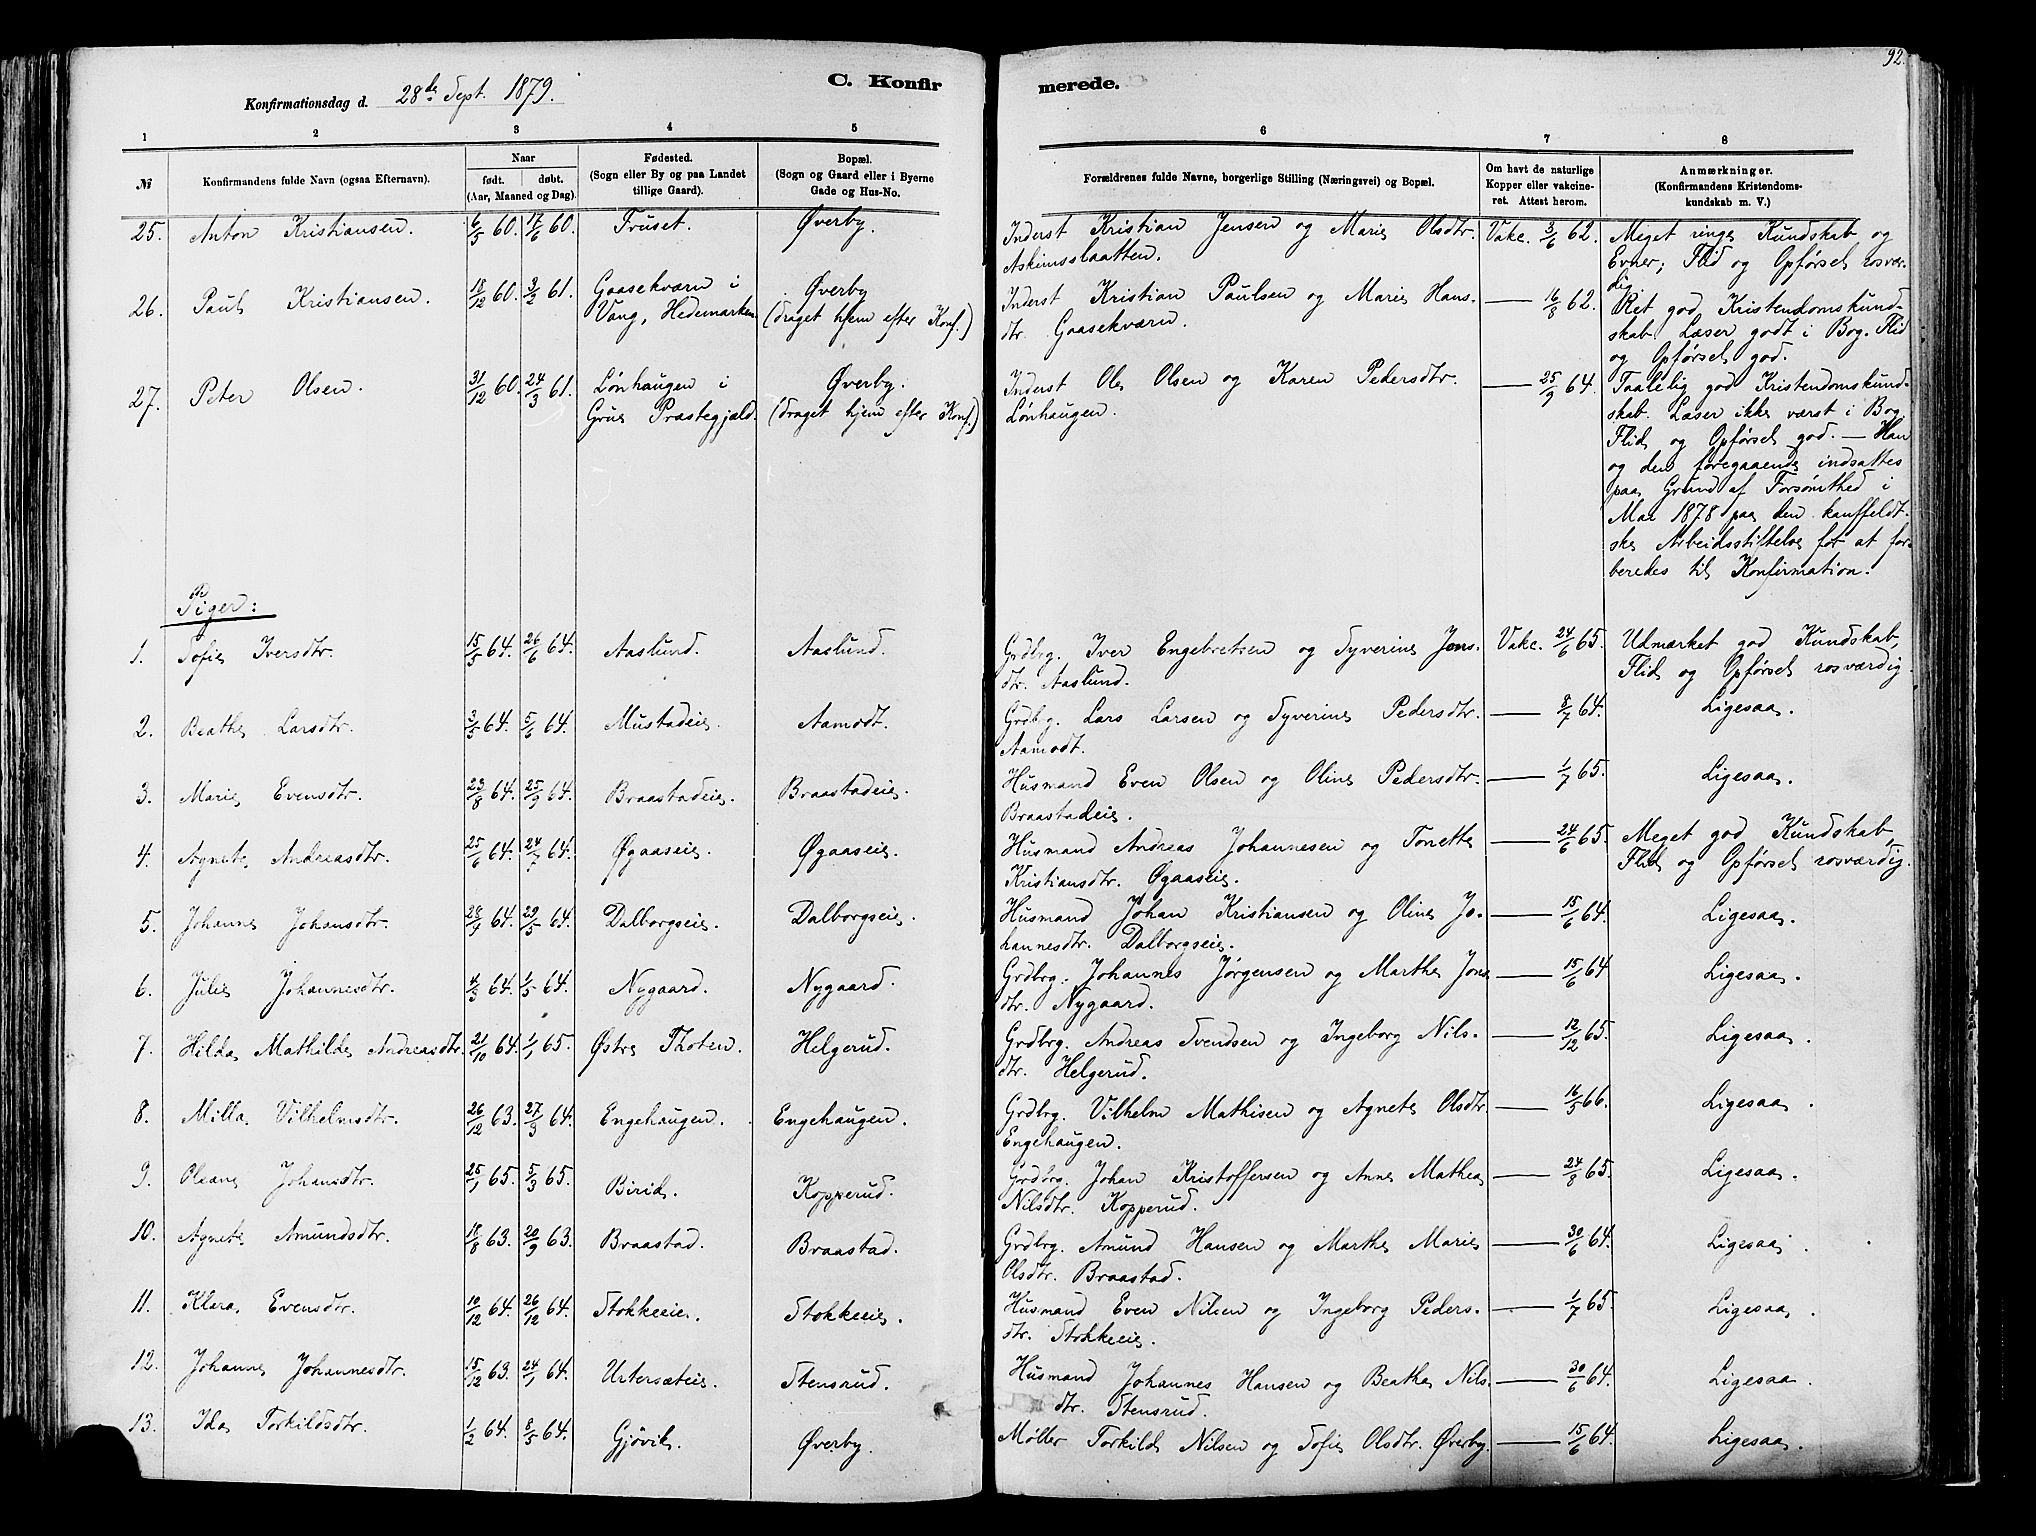 92.
Konfirmationsdag d. 28de Sept. 1879.
C. Konfir
merede.
1 2 3 4 5 6 7 8
№
Konfirmandens fulde Navn (ogsaa Efternavn).
Naar
født. døbt.
(Aar, Maaned og Dag).
Fødested.
(Sogn eller By og paa Landet
tillige Gaard).
Bopæl.
(Sogn og Gaard eller i Byerne
Gade og Hus-No.
Forældrenes fulde Navne, borgerlige Stilling (Næringsvei) og Bopæl.
Om havt de naturlige
Kopper eller vakcine-
ret. Attest herom.
Anmærkninger.
(Konfirmandens Kristendoms-
kundskab m. V.)
25. Anton Kristiansen. 6/5 60. 17/6 60. Fruset. Øverby. Inderst Kristian Jensen og Marie Olsdtr. Vakc. 3/6 62. Meget ringe Kundskab og
Askimsslaatten. Evner; Flid og Opførsel rosvær-
dig.
26. Paul Kristiansen. 18/12 60. 3/2 61. Gaasekværn i Øverby Inderst Kristian Paulsen og Marie Hans- — 16/8 62. Ret god Kristendomskund-
Vang, Hedemarken (draget hjem efter Konf.) dtr. Gaasekværn. skab. Læser godt i Bog. Flid
og Opførsel god.
27. Peter Olsen. 31/12 60. 24/3 61. Lønhaugen i Øverby. Inderst Ole Olsen og Karen Pedersdtr. — 25/9 64. Taalelig god Kristendomskund-
Grue Præstegjæld. (draget hjem efter Konf.) Lønhaugen. skab. Læser ikke værst i Bog.
Flid og Opførsel god. — Han
og den foregaaende indsattes
paa Grund af Forsømthed i
Mai 1878 paa den kauffeldt-
ske Arbeidsstiftelse for at for-
beredes til Konfirmation.
Piger:
1. Sofie Iversdtr. 15/5 64. 26/6 64. Aaslund. Aaslund. Grdbrg. Iver Engebretsen og Syverine Jons- Vakc. 24/6 65. Udmærket god Kundskab,
dtr. Aaslund. Flid og Opførsel rosværdig.
2. Beathe Larsdtr. 3/5 64. 5/6 64. Mustadeie. Aamodt. Grdbrg. Lars Larsen og Syverine Pedersdtr. — 8/7 64. Ligesaa.
Aamodt.
3. Marie Evensdtr. 23/8 64. 25/9 64. Braastadeie. Braastadeie. Husmand Even Olsen og Oline Pedersdtr. — 1/7 65. Ligesaa.
Braastadeie.
4. Agnete Andreasdtr. 25/6 64. 24/7 64. Øgaaseie. Øgaaseie. Husmand Andreas Johannesen og Torette — 24/6 65. Meget god Kundskab,
Kristiansdtr. Øgaaseie. Flid og Opførsel rosværdig.
5. Johanne Johansdtr. 64. 29/5 64. Dalborgseie. Dalborgseie. Husmand Johan Kristiansen og Oline Jo- — 15/6 64. Ligesaa.
hannesdtr. Dalborgseie.
6. Julie Johannesdtr. 64. 1/5 64. Nygaard. Nygaard. Grdbrg. Johannes Jørgensen og Marthe Jons — 15/6 64 Ligesaa.
dtr. Nygaard.
7. Hilda Mathilde Andreasdtr. 21/10 64. 1/1 65. Østre Thoten. Helgerud. Grdbrg. Andreas Svendsen og Ingeborg Nils- — 12/12 65. Ligesaa.
dtr. Helgerud.
8. Milla Vilhelmsdtr. 26/12 63. 27/3 64. Engehaugen. Engehaugen. Grdbrg. Vilhelm Mathisen og Agnete Olsdtr. — 16/5 66. Ligesaa.
Engehaugen.
9. Oleane Johansdtr. 25/1 65. 5/3 65. Birid. Kopperud. Grdbrg. Johan Kristoffersen og Anne Mathea — 24/8 65. Ligesaa.
Nilsdtr. Kopperud.
10. Agnete Amundsdtr. 18/8 63. 20/9 63. Braastad. Braastad. Grdbrg. Amund Hansen og Marthe Marie — 30/6 64. Ligesaa.
Olsdtr. Braastad.
11. Klara Evensdtr. 10/12 64. 26/12 64. Stokkeeie. Stokkeeie. Husmand Even Nilsen og Ingeborg Peders- — 1/7 65. Ligesaa.
dtr. Stokkeeie.
12. Johanne Johannesdtr. 15/12 63. 24/1 64. Stensrud. Husmand Johannes Hansen og Beathe Nils- — 30/6 64. Ligesaa.
dtr. Stensrud.
13. Ida Torkildsdtr. 1/2 64. 8/5 64. Gjøvik. Øverby. Møller Torkild Nilsen og Sofie Olsdtr. Øverby. — 15/6 64. Ligesaa.